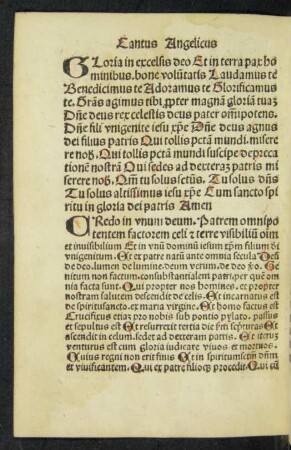 Cantus Angelicus
Gloria in excelsis deo Et in terra pax ho
minibus. bone volūtatis Laudamus te
Benedicimus te Adoramus te Glorificamus
te. Grās agimus tibi. ꝓpter magnā gloriā tuaꝫ
Dn̄e deus rex celestis deus pater om̄ipotens.
Dn̄e fili vnigenite iesu xp̄e Dn̄e deus agnus
dei filius patris Qui tollis pctā mundi. misere
re nob̄. Qui tollis pctā mundi suscipe depreca
tionem nostrā Qui sedes ad dexteraꝫ patris mi
serere nob̄. Qm̄ tu solus sctūs. Tu solus dn̄s
Tu solus altissimus iesu xp̄e Cum sancto spi
ritu in gloria dei patris Amen
CRedo in vnum deum. Patrem omnipo
tentem factorem celi ⁊ terre visibiliū oīm
et inuisibilium Et in vnū dominū iesum xp̄m filium di
vnigenitum. Et ex patre natū ante omnia secula Deū
de deo. lumen de lumine. deum verum. de deo ꝟo. Ge
nitum non factum. consubstantialem patri. per quē om
nia facta sunt. Qui propter nos homines. et propter
nostram salutem descendit de celis. Et incarnatus est
de spiritusancto. ex maria virgine. Et homo factus est
Crucifixus etiaꝫ pro nobis sub pontio pylato. passus
et sepultus est Et resurrexit tertia die scdm̄ scpturas Et
ascendit in celum. sedet ad dexteram patris. Et iteruꝫ
venturus est cum gloria iudicare viuos et mortuos.
Cuius regni non erit finis Et in spiritumsctm̄ dn̄m
et viuificantem. Qui ex patre filioqꝫ procedit. Qui cū